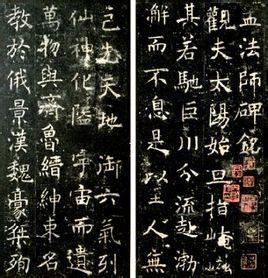 孟法師碑銘
觀夫太陽始旦指崦
其若馳巨川分流赴渤
澥而不息是以至人無
己先天地御六氣列
仙神化隘宇宙而遺
萬物與齊魯縉紳束名
教於俄景漢魏豪桀殉